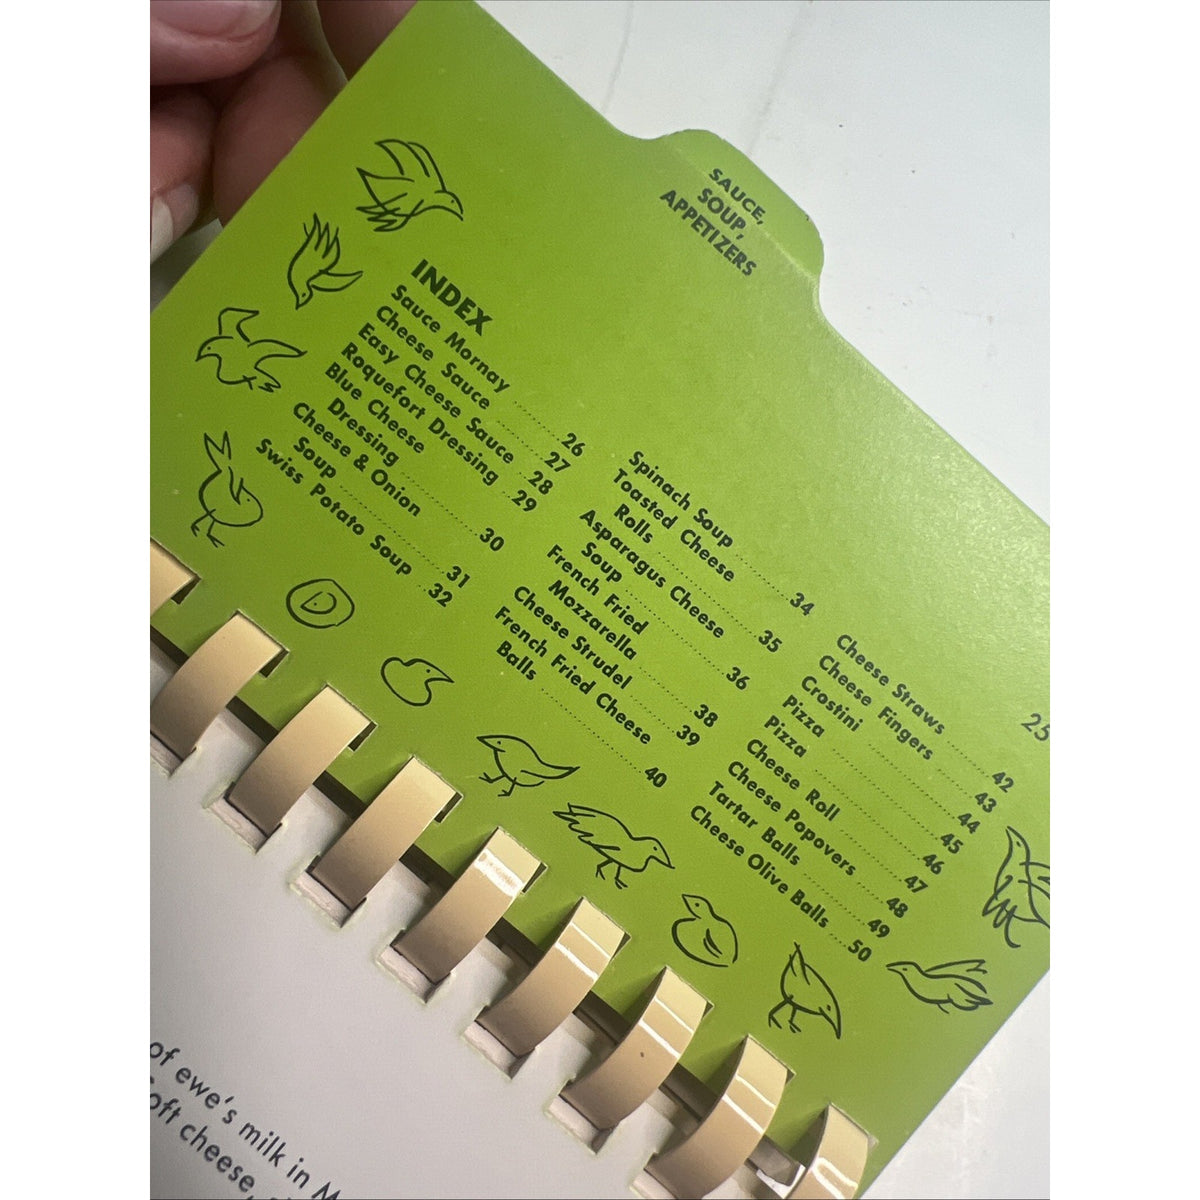 SAUCE,
SOUP,
APPETIZERS
INDEX
Sauce Mornay ........ 26
Cheese Sauce ........ 27
Easy Cheese Sauce ..... 28
Roquefort Dressing .. 29
Blue Cheese
Dressing ............ 30
Cheese & Onion
Soup ................ 31
Swiss Potato Soup .. 32
Spinach Soup ........ 34
Toasted Cheese
Rolls ............... 35
Asparagus Cheese
Soup ................ 36
French Fried
Mozzarella .......... 38
Cheese Strudel ...... 39
French Fried Cheese
Balls ............... 40
Cheese Straws ....... 42
Cheese Fingers ...... 43
Crostini ............ 44
Pizza ............... 45
Pizza ............... 46
Cheese Roll ......... 47
Cheese Popovers ..... 48
Tartar Balls ........ 49
Cheese Olive Balls ... 50
25
D
of ewe's milk in
soft cheese,